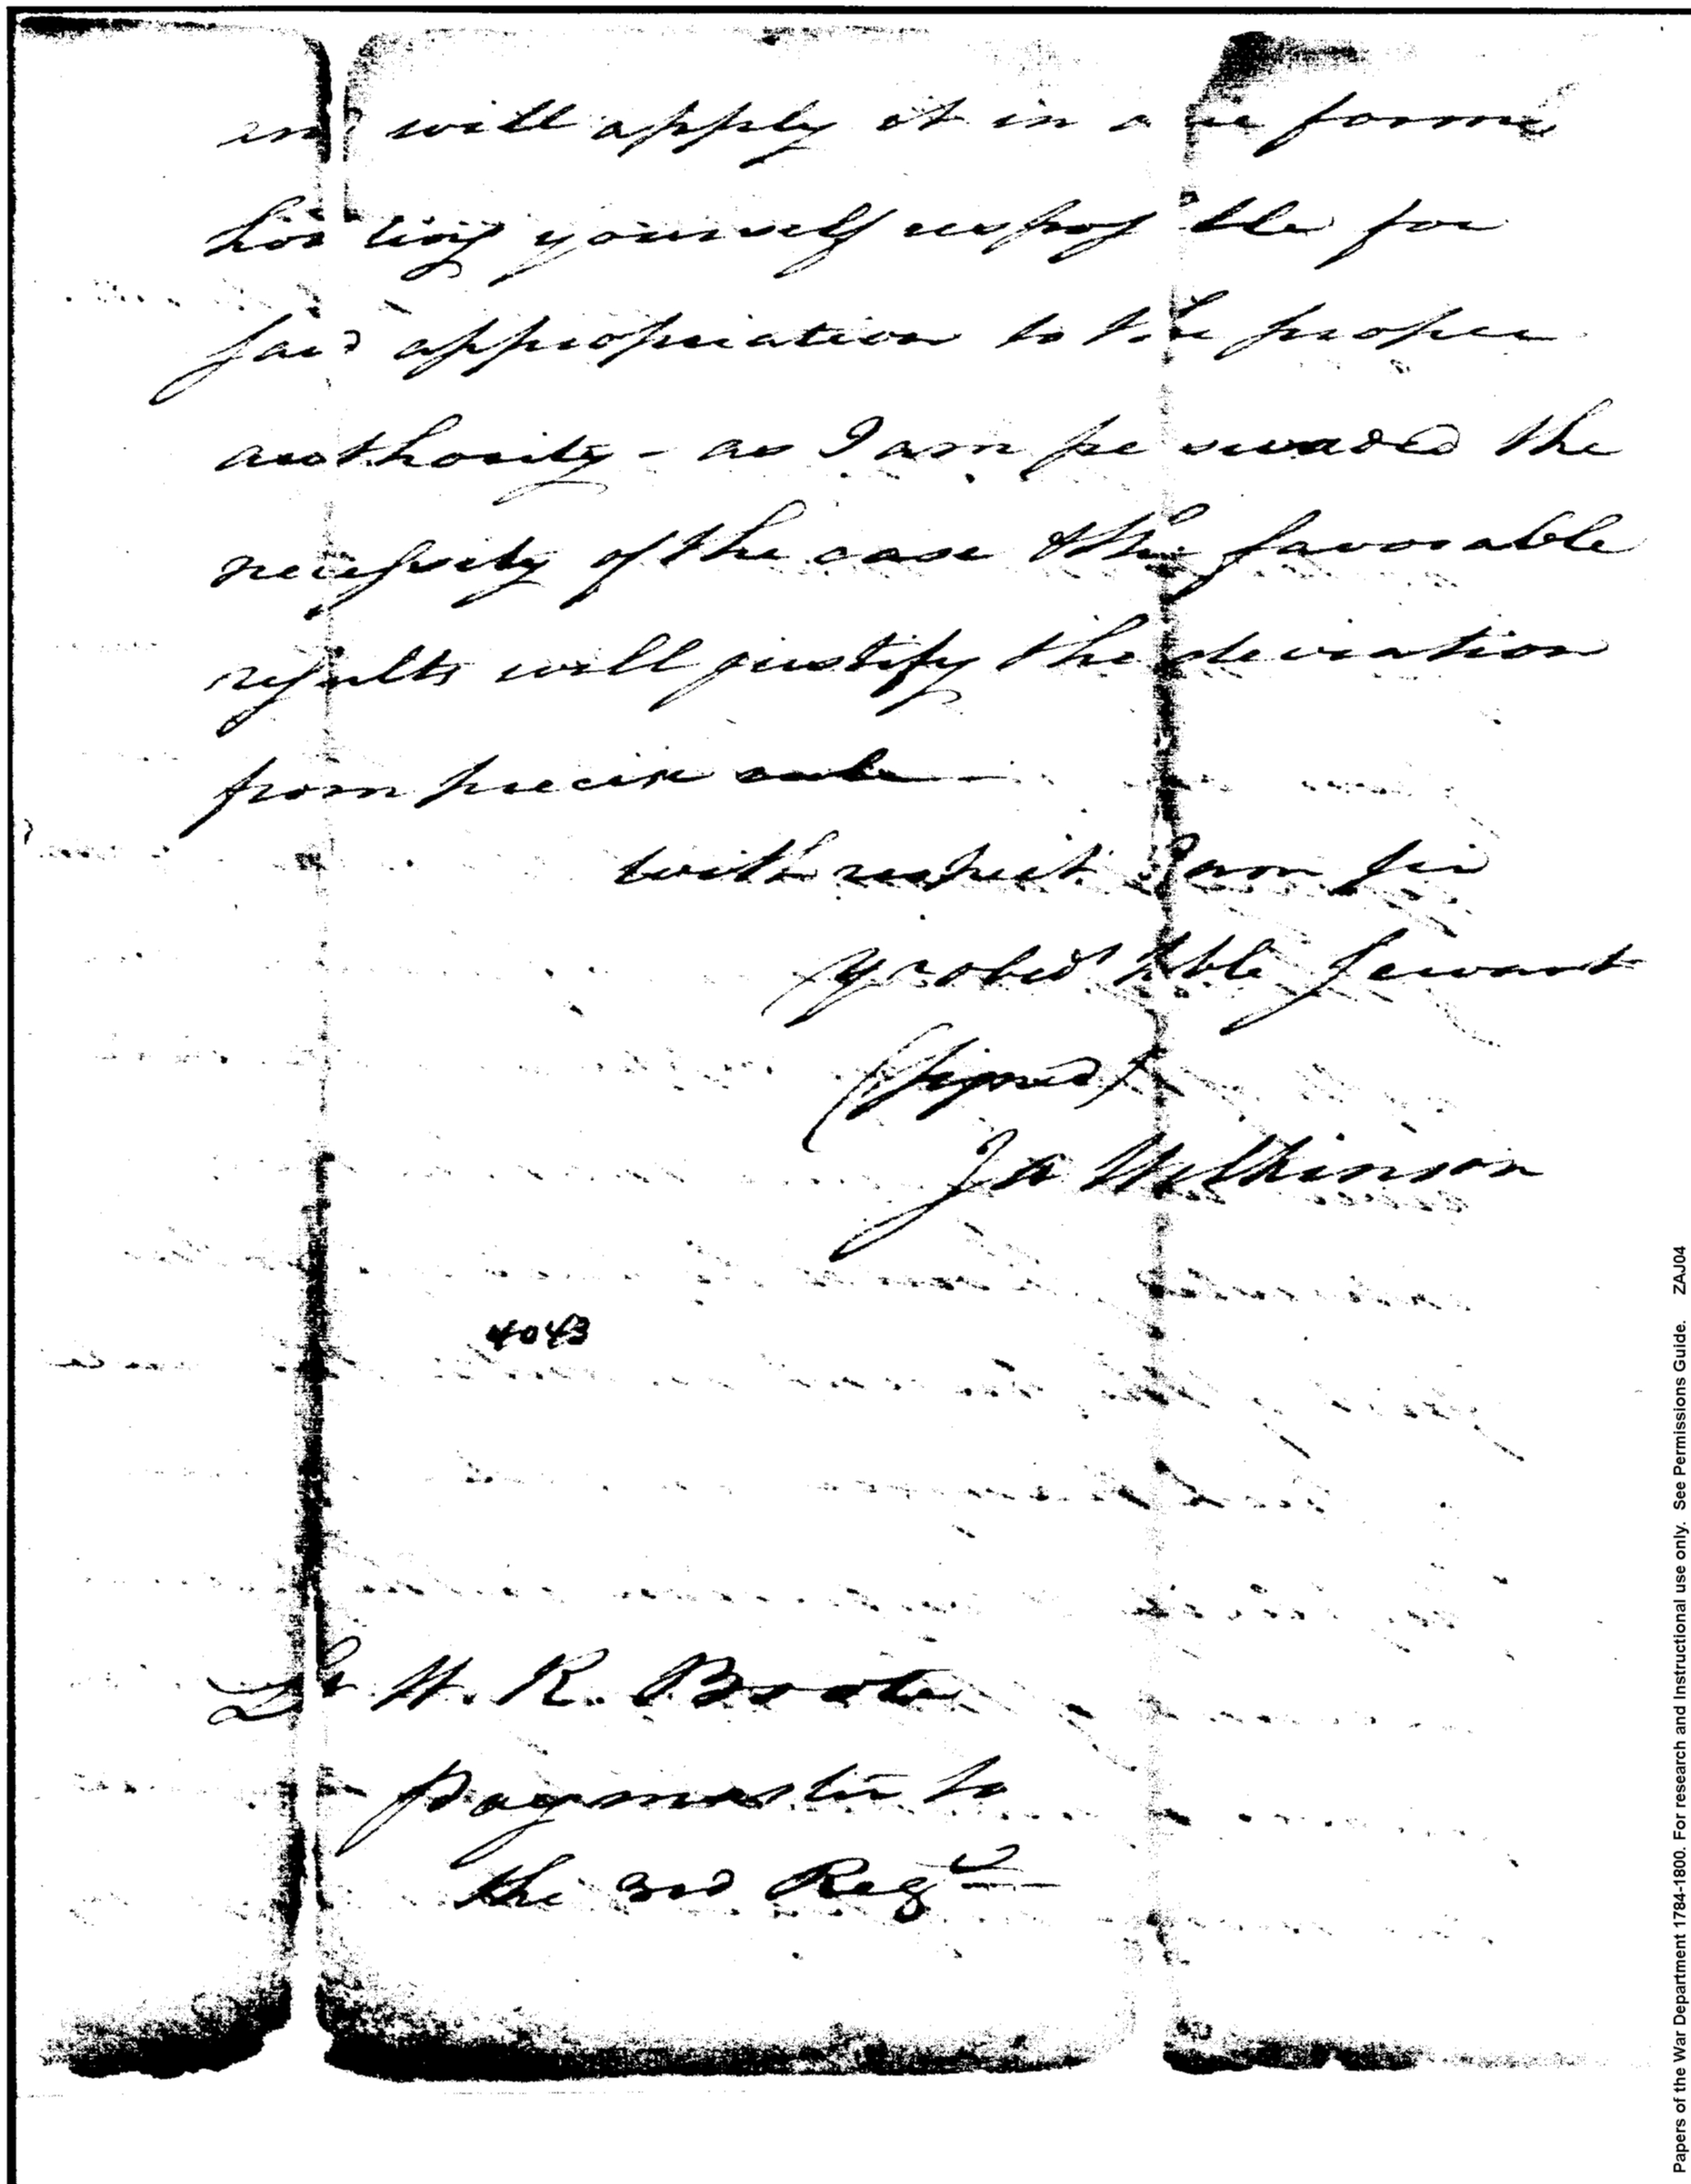 and will apply it in due form
holding yourself responsible for
said appropriation to the proper
authority - as I am persuaded the
necessity of the case & the favorable
results will justify the deviation
from precise rule -
with respect I am sir
yr obed hble Servant
(signed)
Ja Wilkinson
4043
Lt H. R. Boote
paymaster to
the 3rd Regt
Papers of the War Department 1784-1800. For research and Instructional use only. See Permissions Guide. ZAJ04